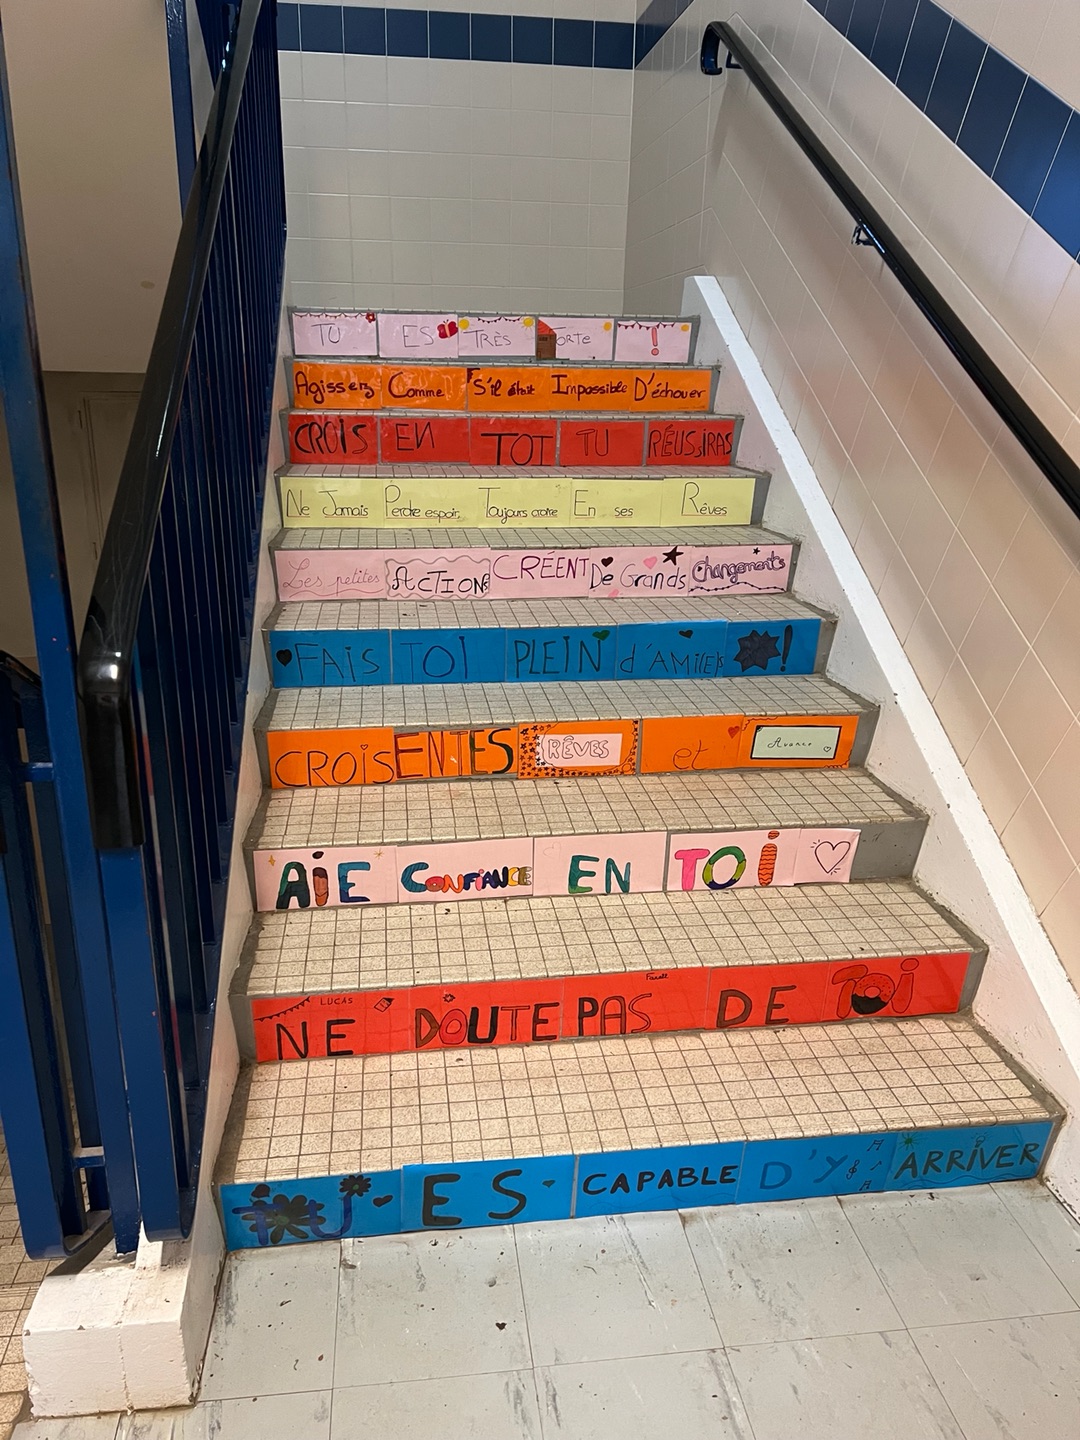 TU ES TRÈS FORTE !
Agissez Comme S'il était Impossible D'échouer
CROIS EN TOI TU RÉUSSIRAS
Ne Jamais Perdre espoir, Toujours croire En ses Rêves
Les petites ACTIONS CRÉENT De Grands Changements
FAIS TOI PLEIN d'AMI(E)s !
CROIS EN TES RÊVES et Avance
AIE CONFIANCE EN TOI
LUCAS
NE DOUTE PAS DE TOI
TU ES CAPABLE D'Y ARRIVER